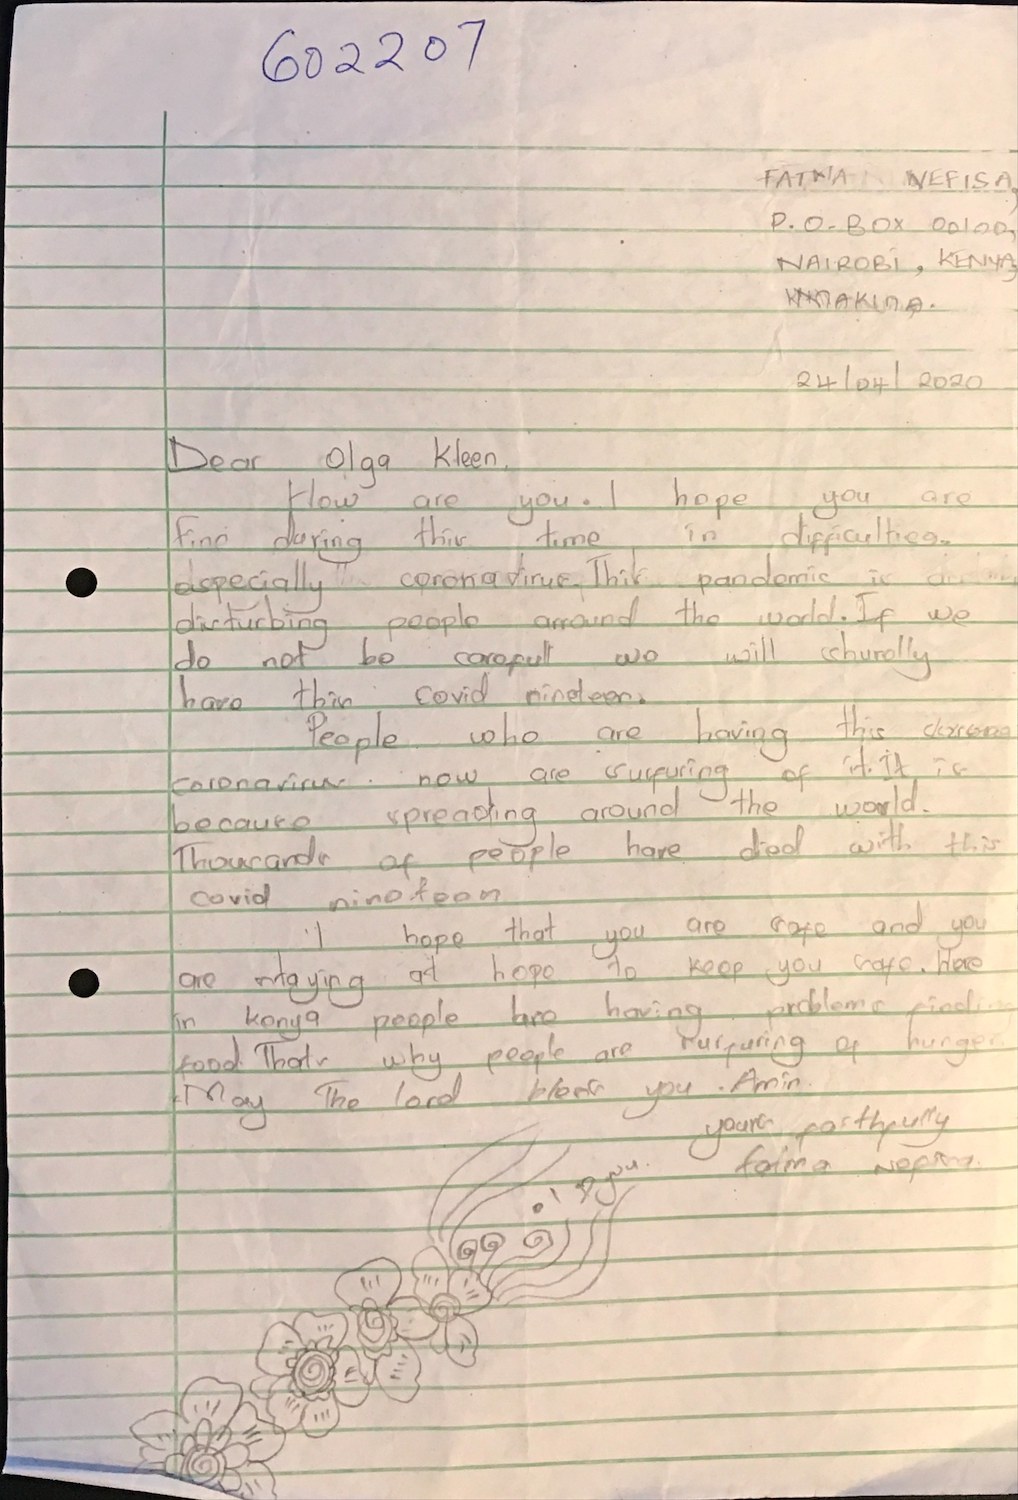 602207
FATMA NEFISA,
P.O-BOX 00100,
NAIROBI, KENYA,
MAKINA.
24/04/2020
Dear Olga Kleen,
How are you. I hope you are
fine during this time in difficulties.
especially coronavirus. This pandemic is
disturbing people arround the world. If we
do not be carefull we will shurelly
have this covid nineteen.
People who are having this
coronavirus now are surfuring of it. It is
because spreading around the world.
Thousands of people have died with this
covid nineteen
I hope that you are safe and you
are staying at hope to keep you safe. Here
in kenya people are having problems finding
food. Thats why people are surfuring of hunger.
May The lord bless you. Amin.
yours faithfully
fatma Nefisa.
I you.